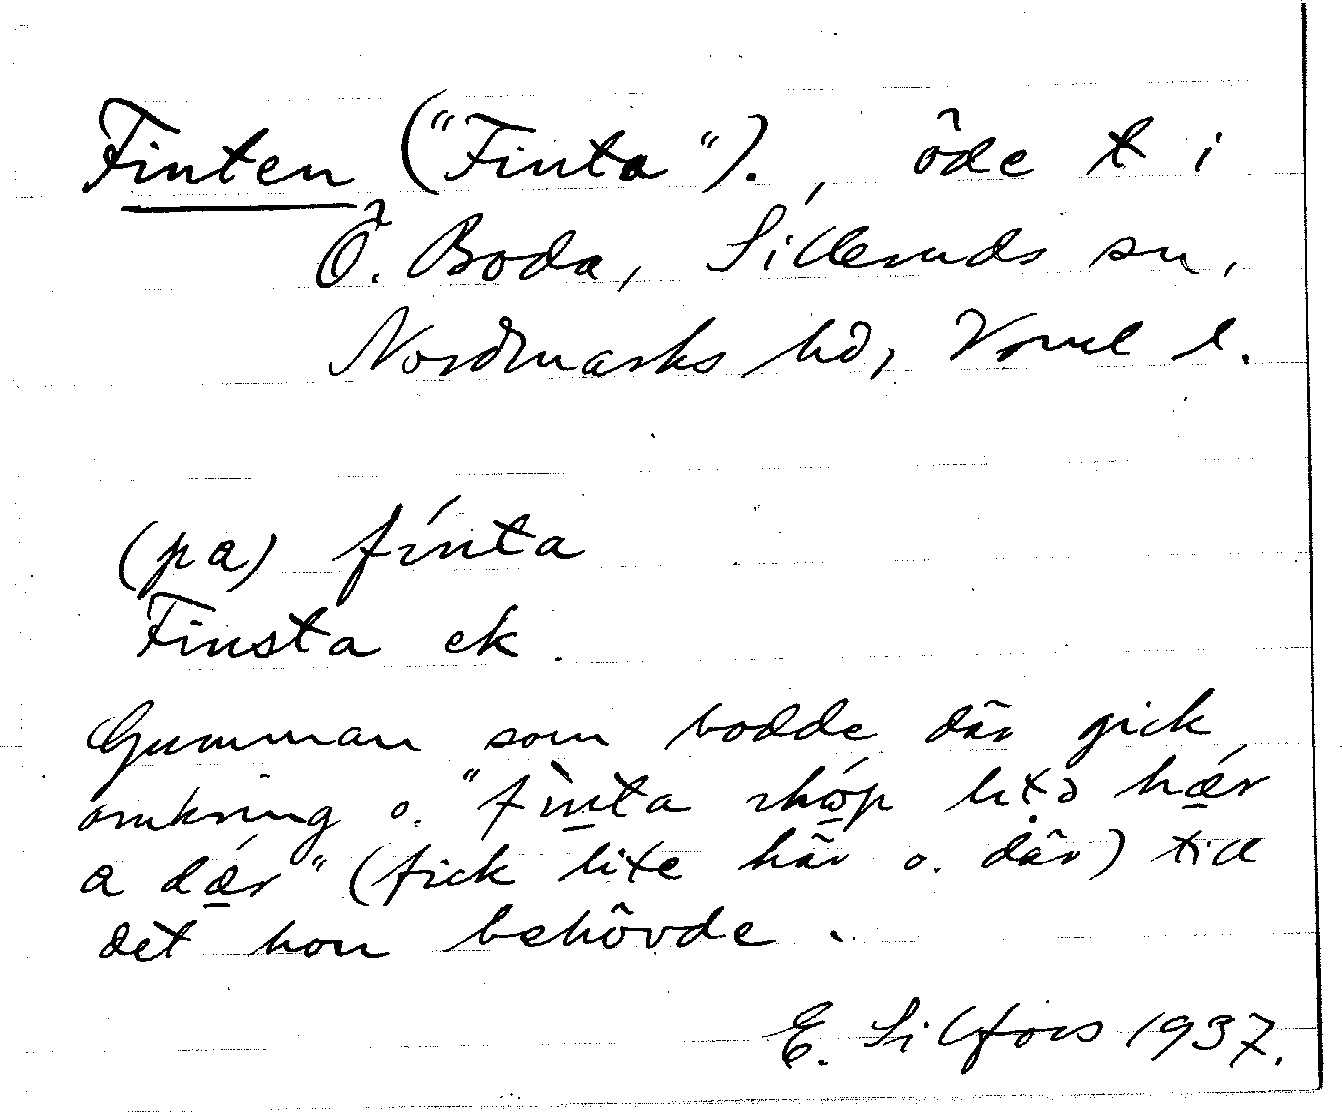 Finten ("Finta")., öde t i
Ö. Boda, Silleruds sn,
Nordmarks hd, Vrml l.
(pa) fínta
Finsta ek.
Gumman som bodde där gick
omkring o. "fìnta ihó̲p litə hǽ̲r
a dǽ̲r" (fick lite här o. där) till
det hon behövde.
E. Silfors 1937.